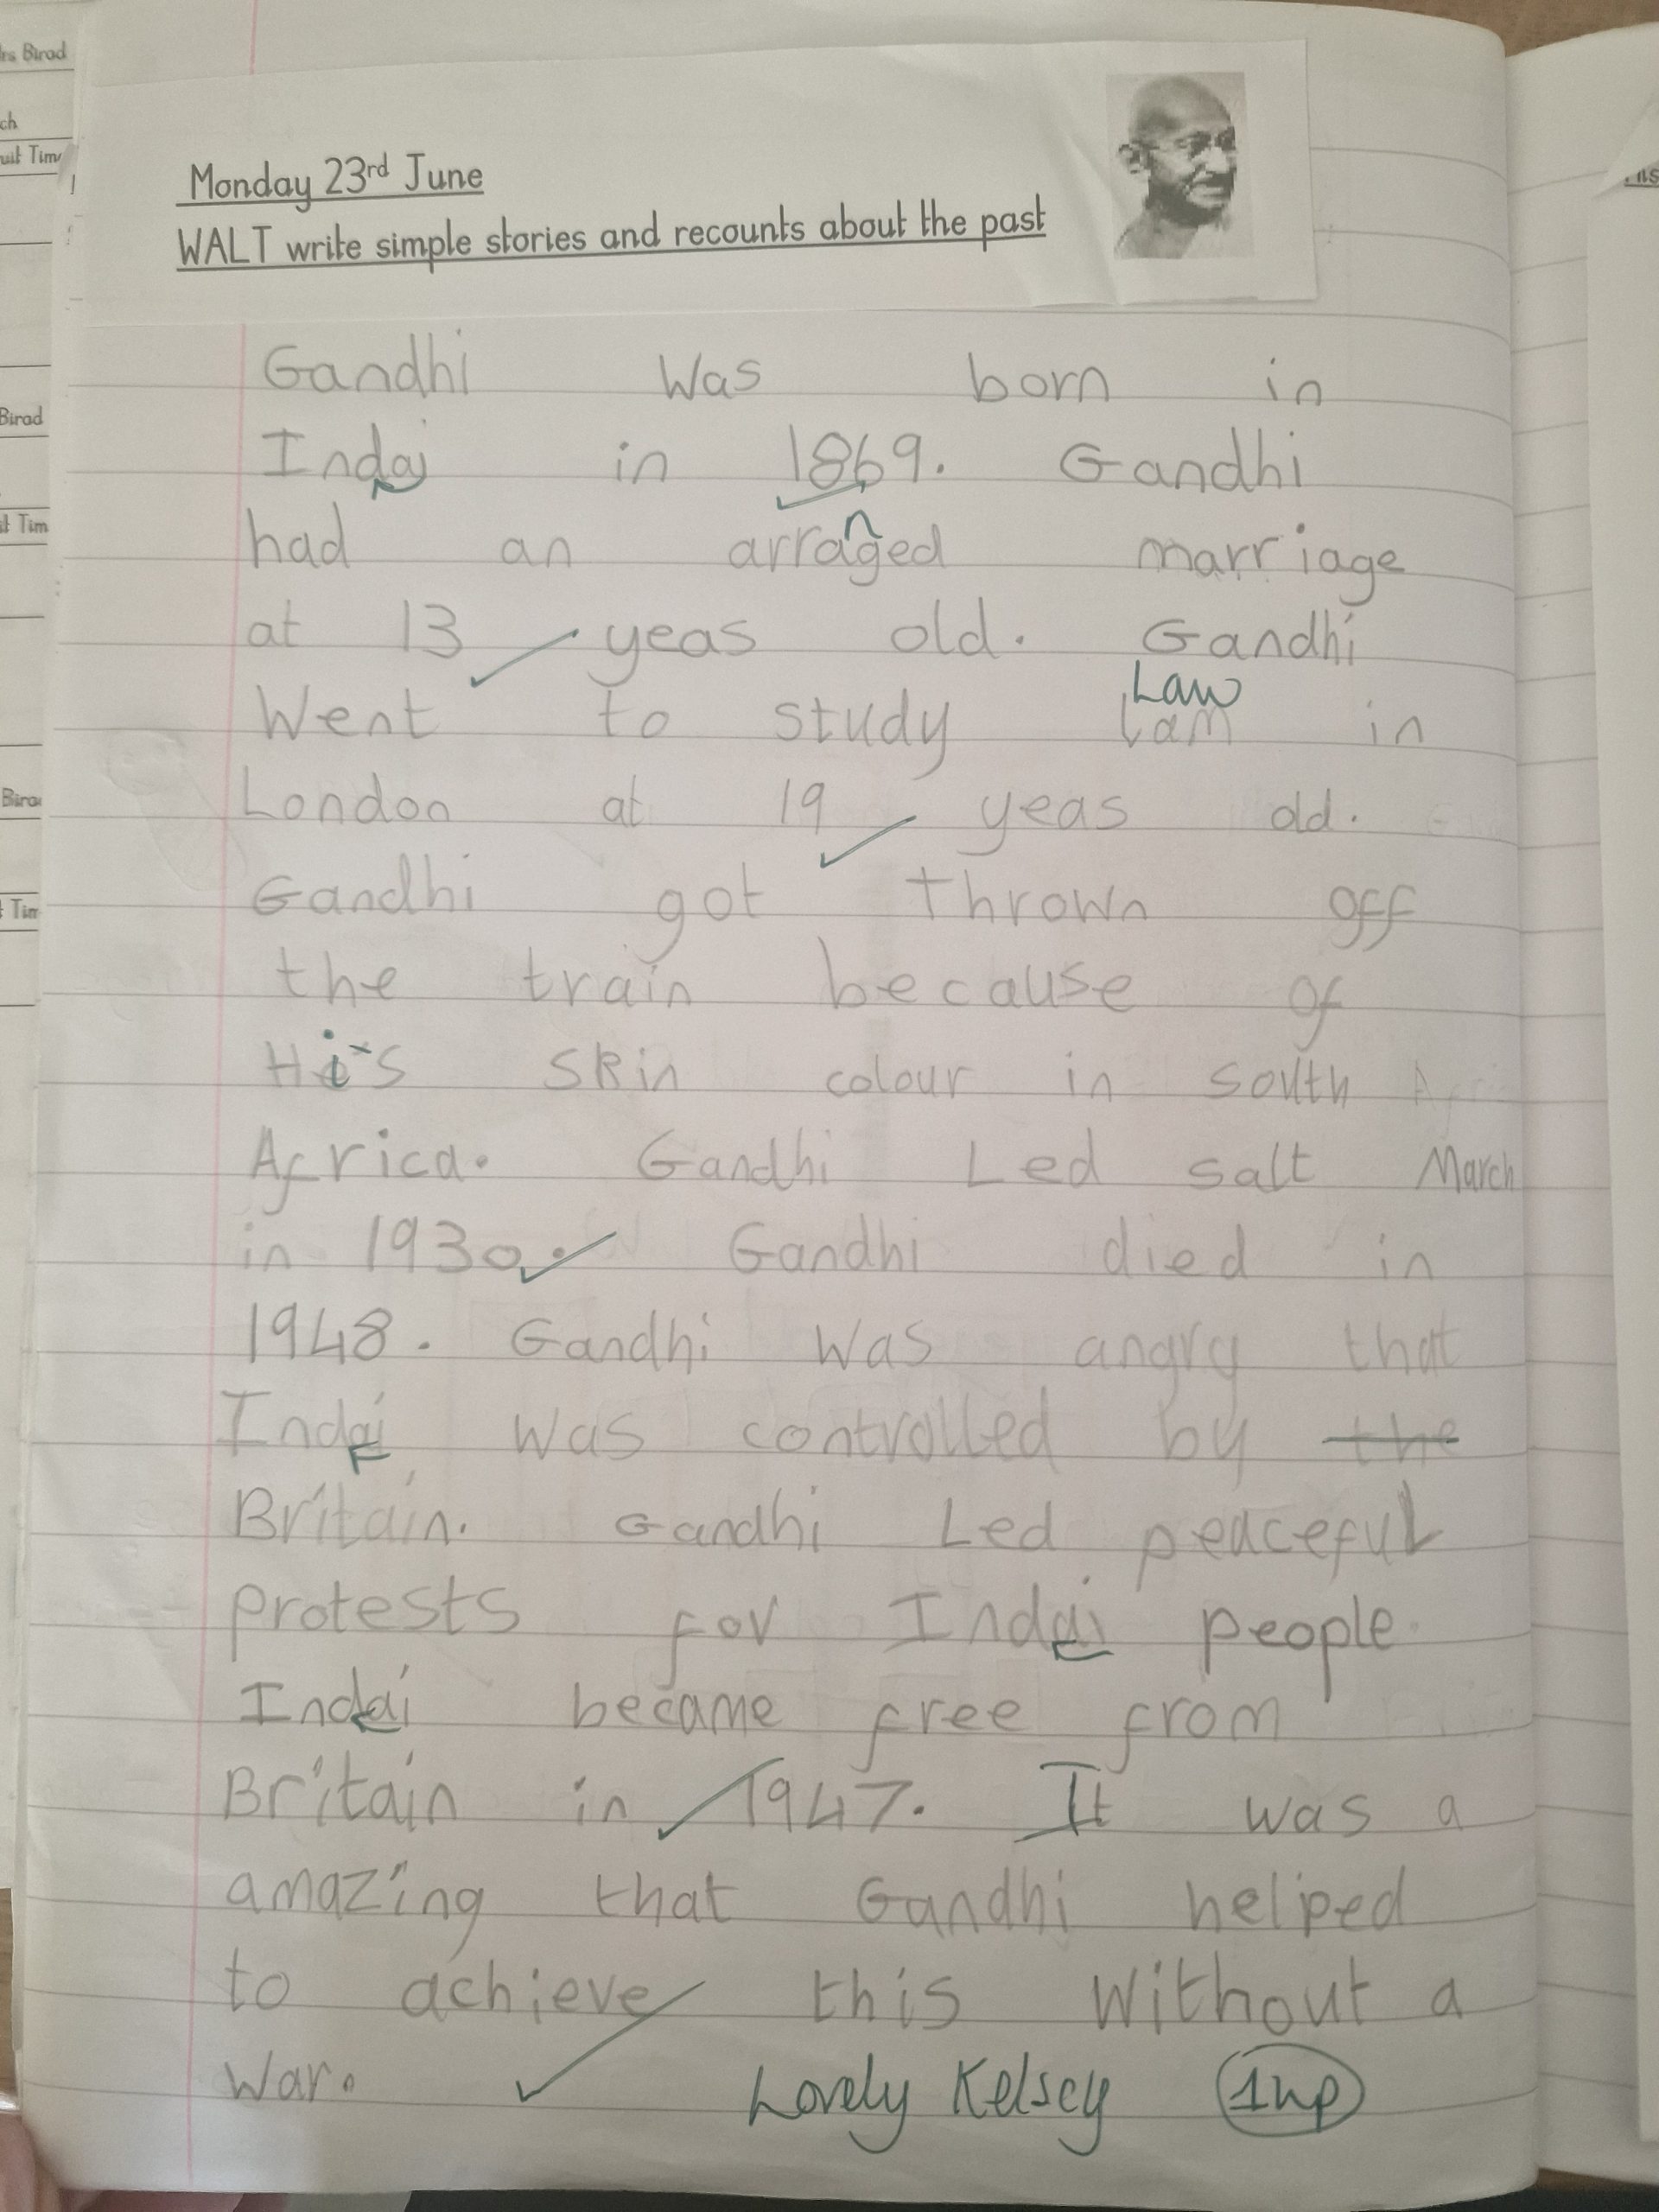 Monday 23rd June
WALT write simple stories and recounts about the past
Gandhi Was born in
Indai in 1869. Gandhi
n
had an arraged marriage
at 13 yeas old. Gandhi
Law
Went to study lam in
London at 19 yeas old.
Gandhi got thrown off
the train because of
His skin colour in south
Africa. Gandhi Led salt March
in 1930. Gandhi died in
1948. Gandhi was angry that
Indai was controlled by the
Britain. Gandhi Led peaceful
protests for Indai people.
Indai became free from
Britain in 1947. It was a
amazing that Gandhi helped
to achieve this without a
war.
Lovely Kelsey 1hp
Birod
ch
Tim
Birod
Tim